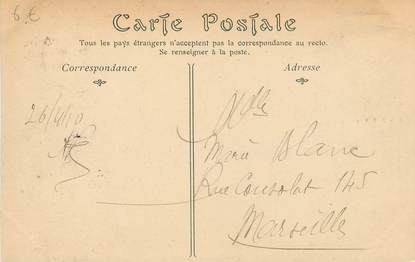 6.€
Carte Postale
Tous les pays étrangers n'acceptent pas la correspondance au recto.
Se renseigner à la poste.
Correspondance
Adresse
26/4/10
Mlle
Marie Blanc
Rue Consolat 145
Marseille